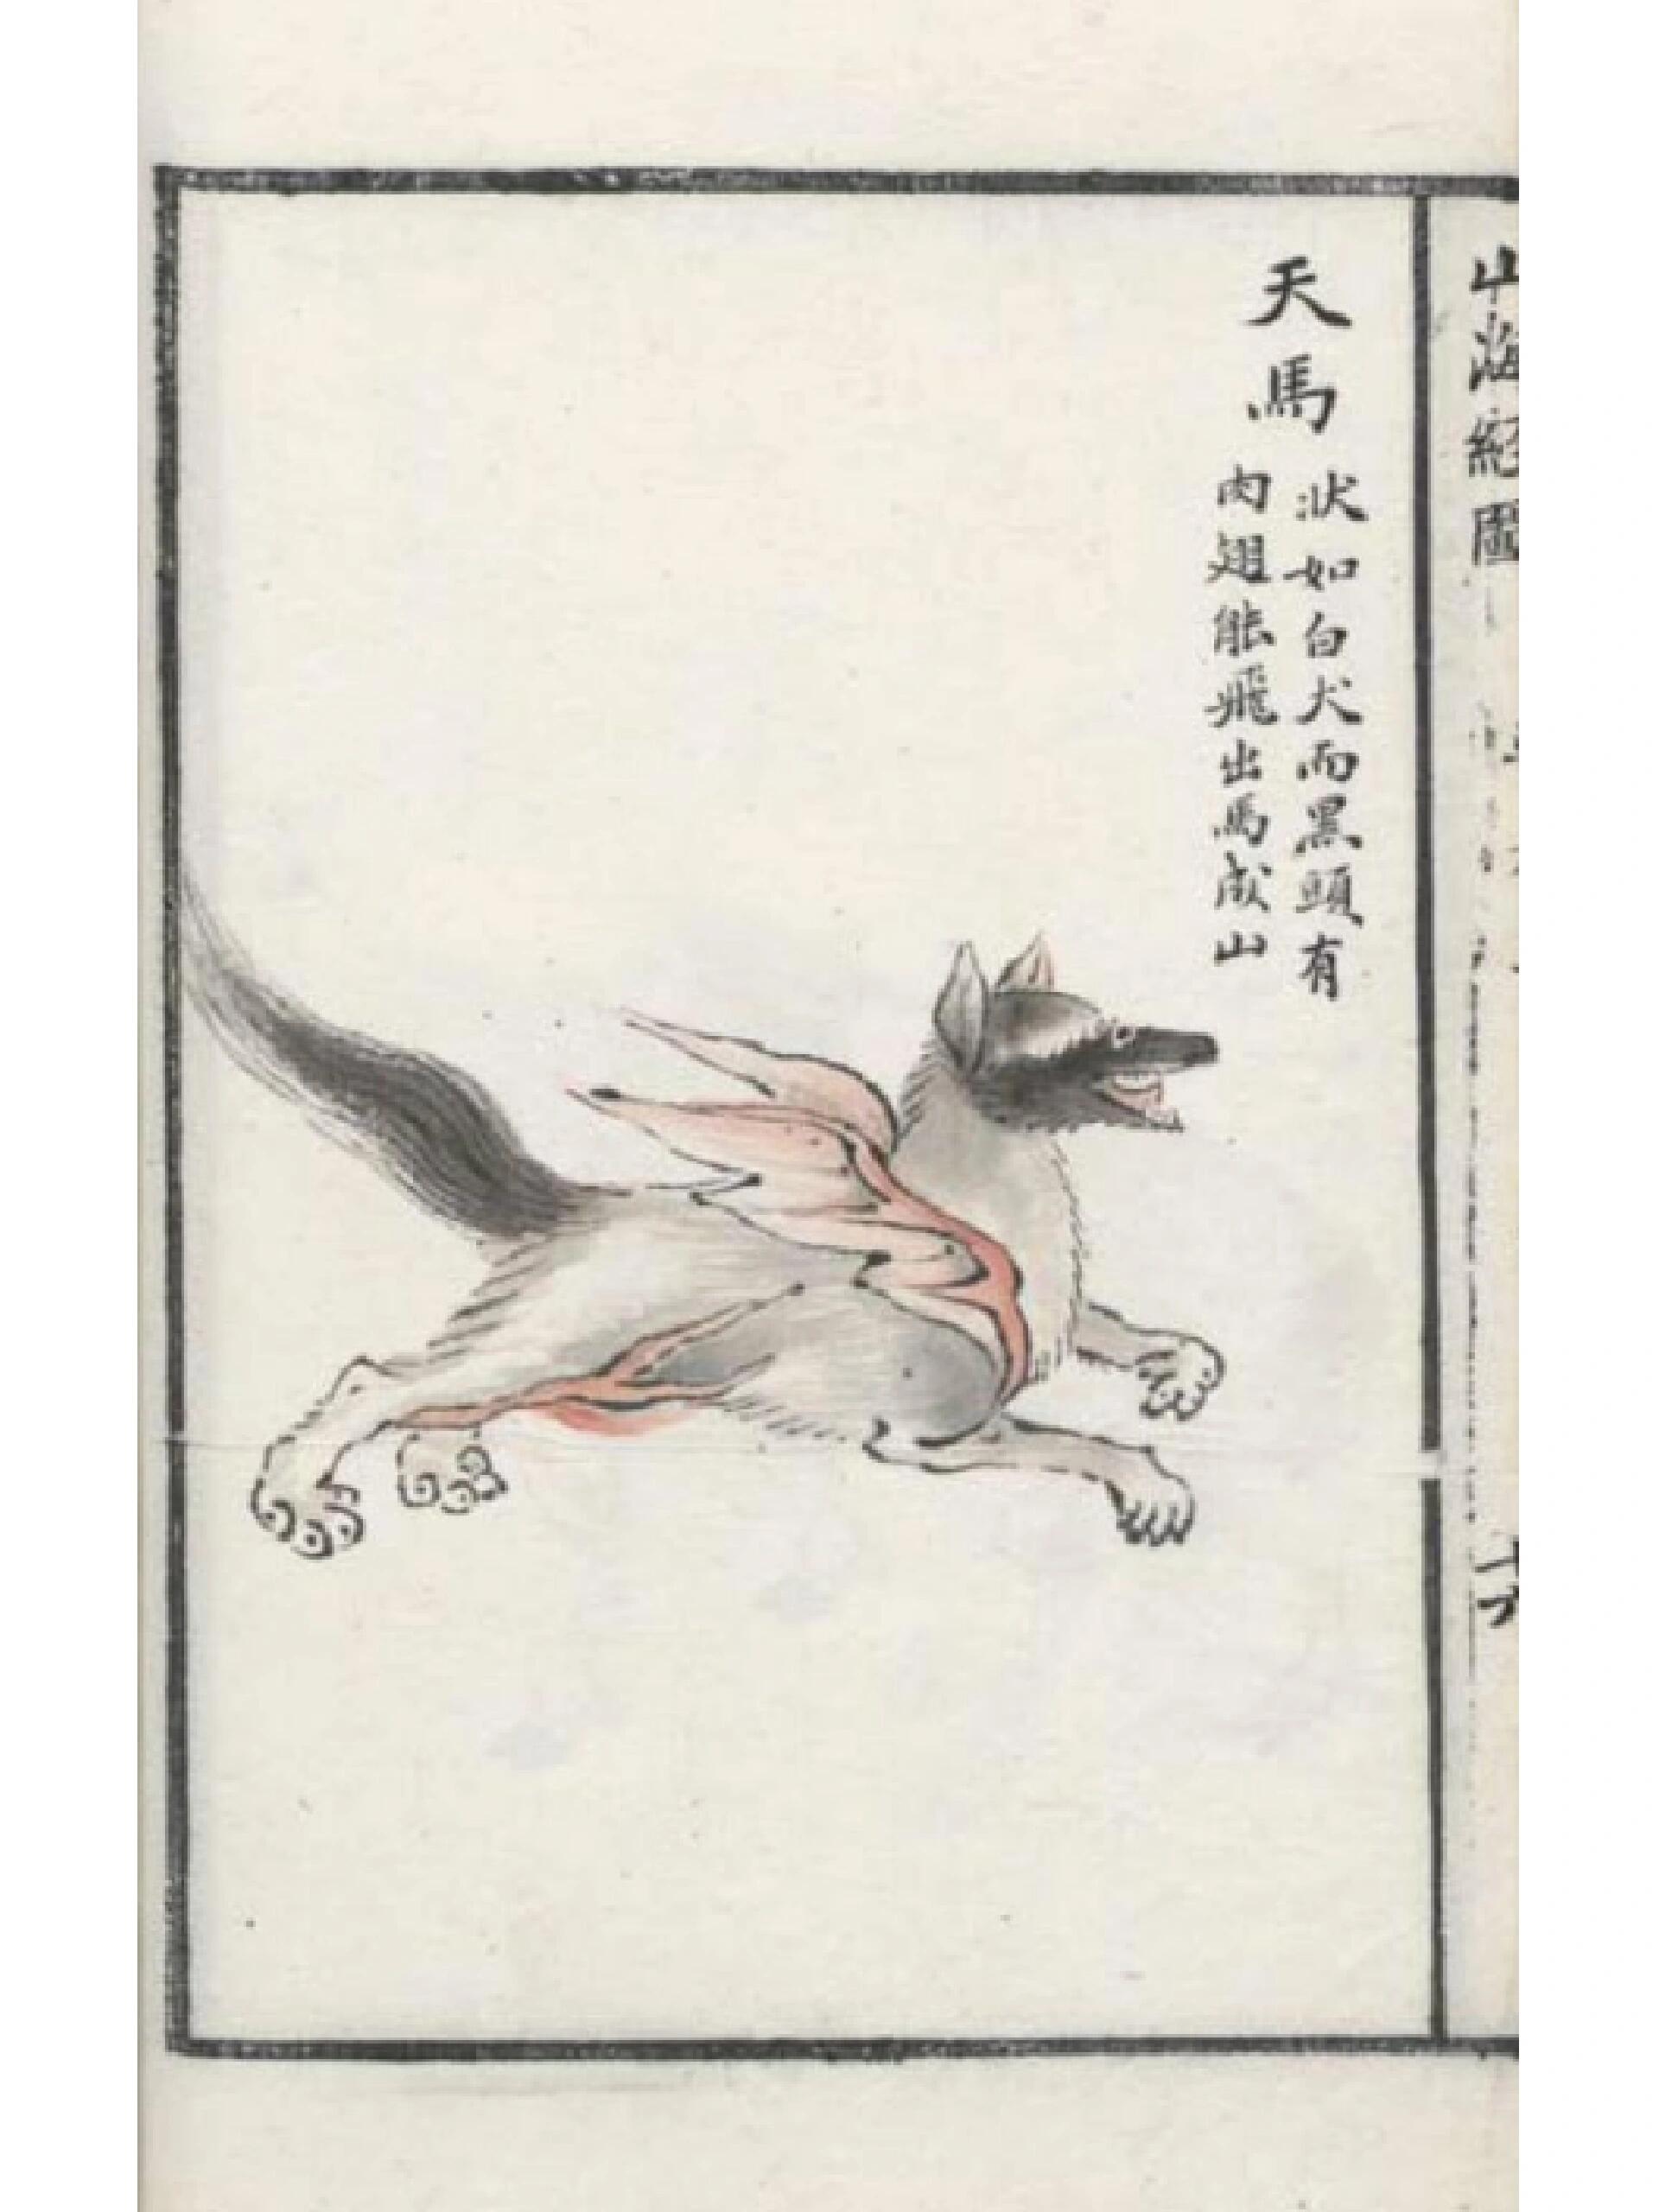 山海經圖
十六
天馬
狀如白犬而黑頭有
肉翅能飛出馬成山